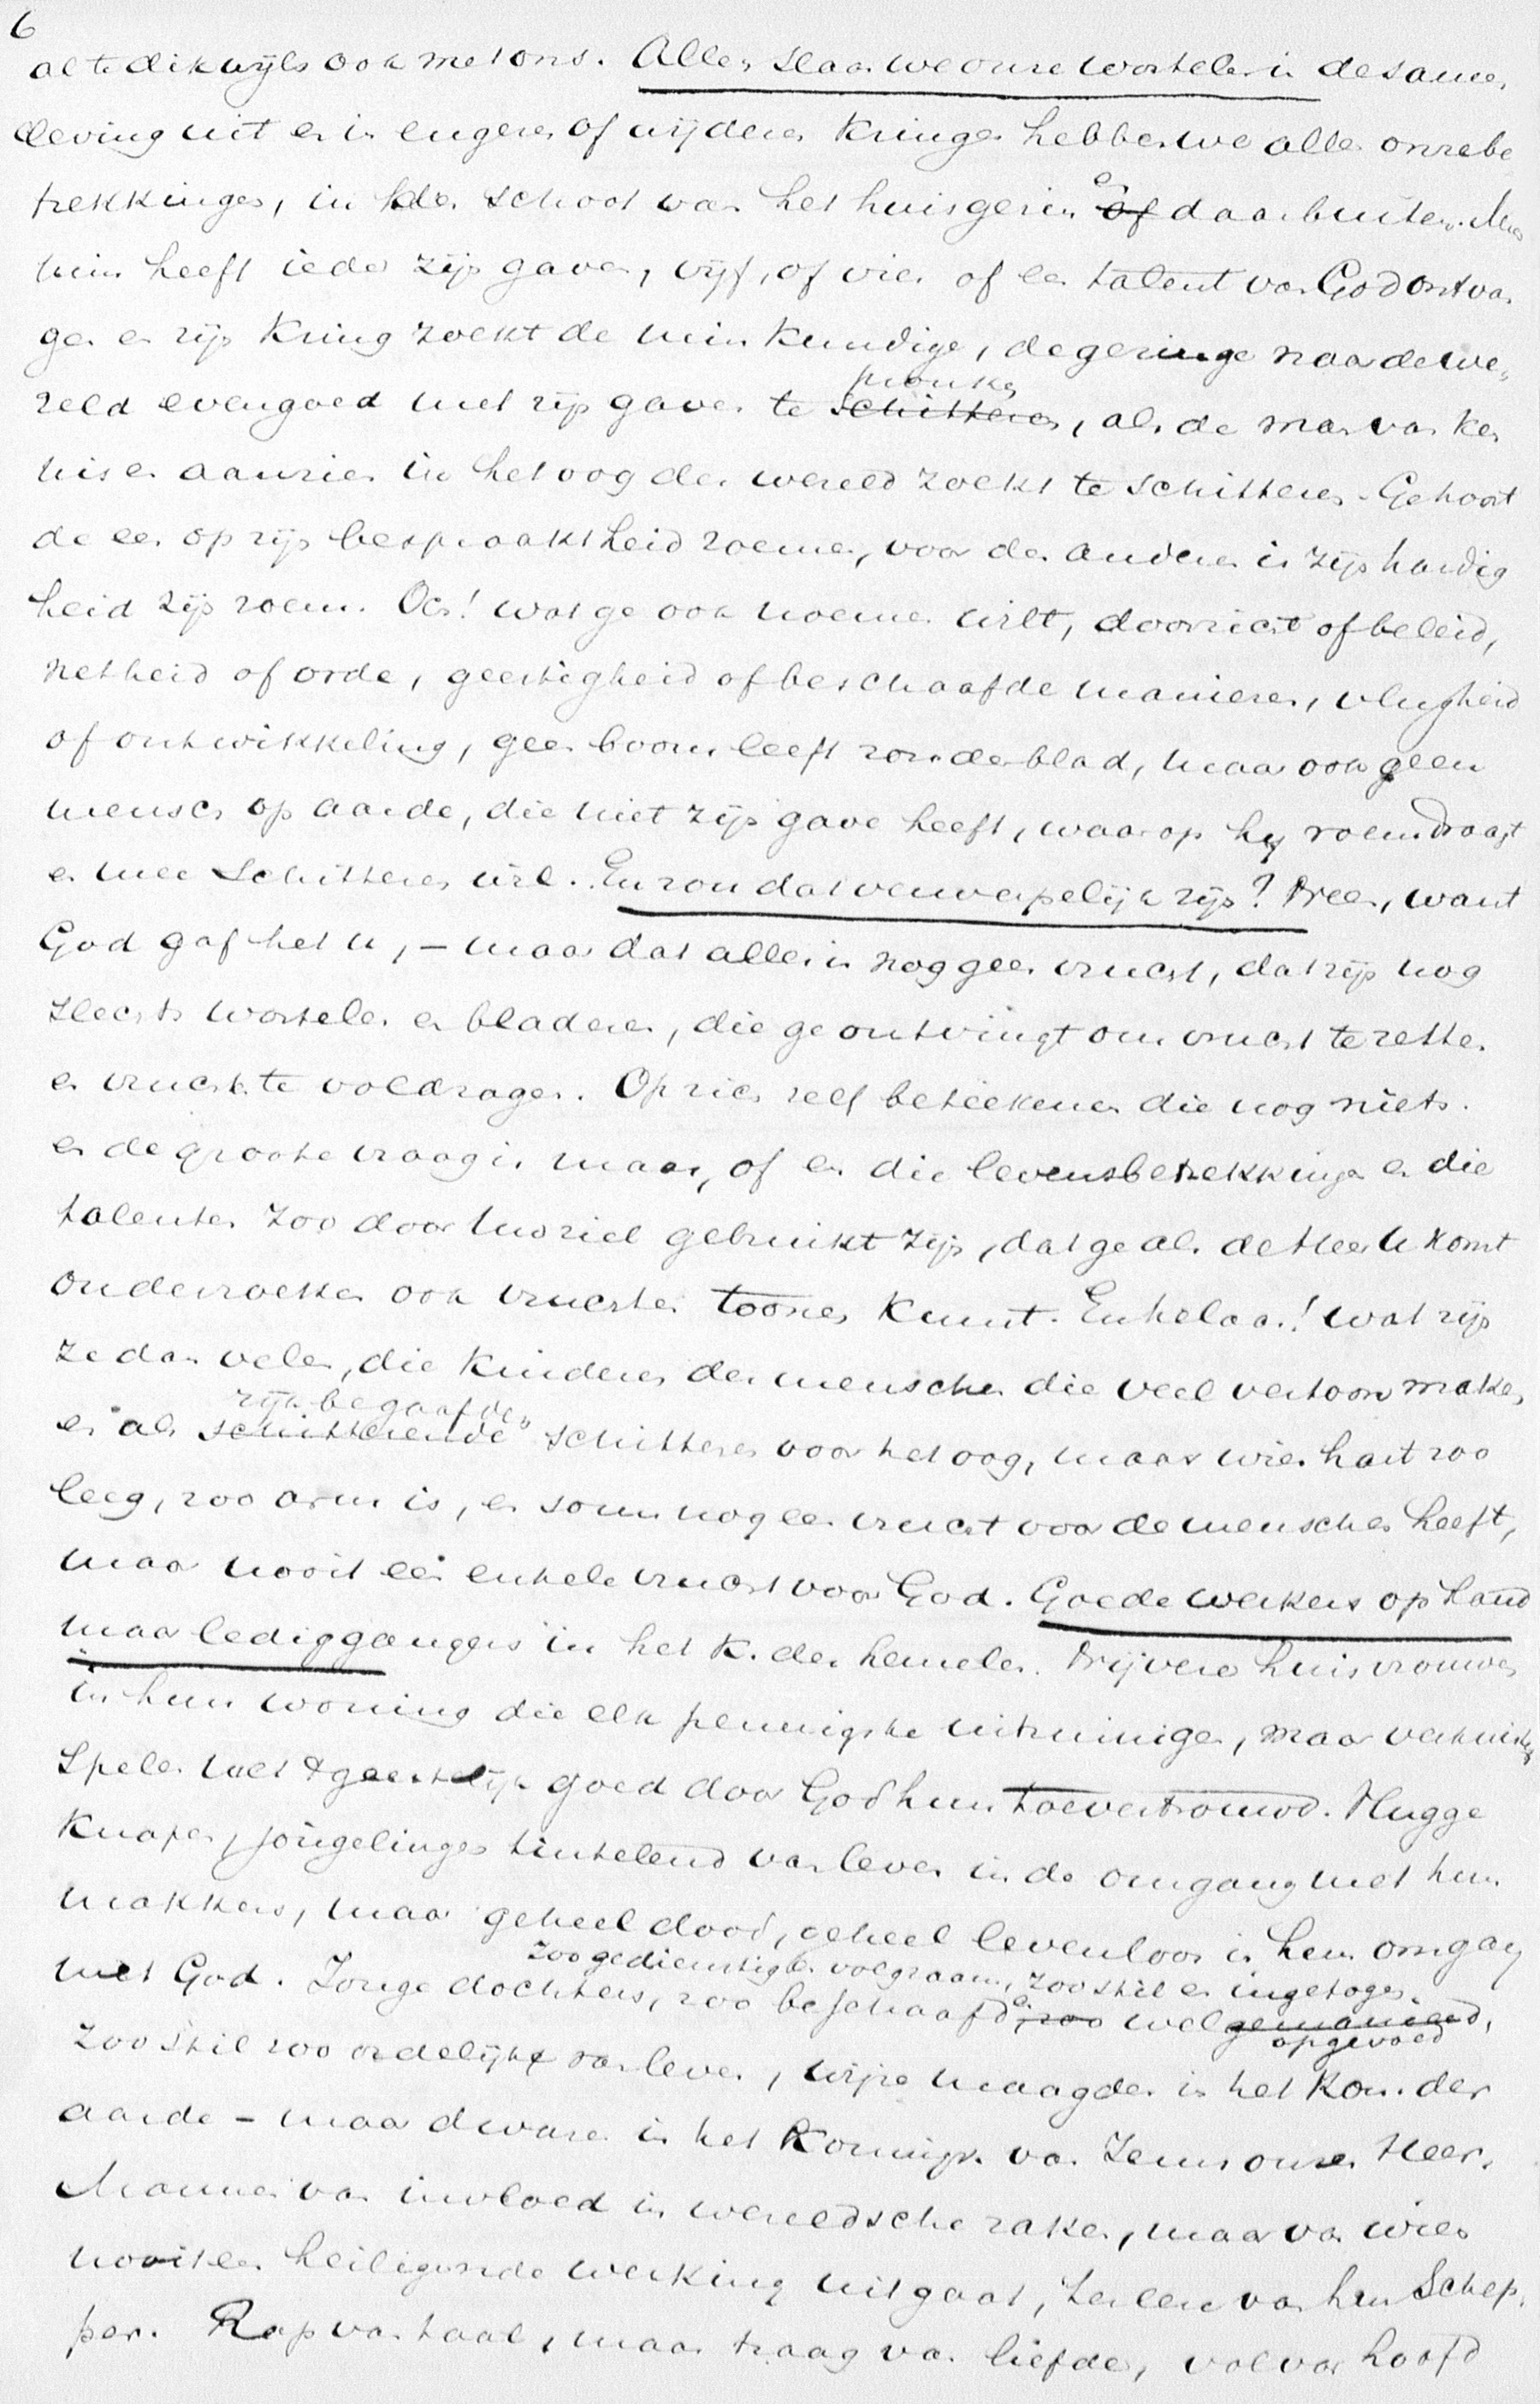 6
al te dikwijls ook met ons. Allen slaan we onze wortelen in de samen
leving uit en in engeren of wijderen kringen hebben we allen onze be
trekkingen, in den schoot van het huisgezin en of daarbuiten. Nu
heeft ieder zijn gaven, vijf, of vier of een talent van God ontvan
gen en zijn kring zoekt de min kundige, de geringe naar de we,
reld evengoed met zijn gaven te pronken schitteren, als de man van ken
nis en aanzien in het oog der wereld zoekt te schitteren. Gehoort
de een op zijn bespraaktheid roemen, voor den anderen is zijn handig
heid zijn roem. Och! wat ge ook noemen wilt, doorzicht of beleid,
netheid of orde, geestigheid of beschaafde manieren, vlugheid
of ontwikkeling, geen boom leeft zonder blad, maar ook geen
mensch op aarde, die niet zijn gave heeft, waarop hij roem draagt
en mee schitteren wil. En zou dat verwerpelijk zijn? Neen, want
God gaf het u, – maar dat alles is nog geen vrucht, dat zijn nog
slechts wortelen en bladeren, die ge ontvingt om vrucht te zetten
en vrucht te voldragen. Op zich zelf beteekenen die nog niets.
en de groote vraag is maar, of en die levensbetrekkingen en die
talenten zoo door uw ziel gebruikt zijn, dat ge als de Heer U komt
onderzoeken ook vruchten toonen kunt. Enkelaar! wat zijn
ze dan velen, die kinderen der menschen die veel vertoon maken
en als rijk begaafden schitterende schitteren voor het oog, maar wier hart zoo
leeg, zoo arm is, en soms nog een vrucht voor de menschen heeft,
maar nooit een enkele vrucht voor God. Goede werkers op land
maar lediggangers in het K. der hemelen. Nijvere huisvrouwen
in hun woning die elk penningske uitzuinigen, maar verkwistend
spelen met 't geestelijk goed door God hun toevertrouwd. Vlugge
knapen, jongelingen tintelend van leven in de omgang met hun
makkers, maar geheel dood, geheel levenloos in hun omgang
met God. Jonge dochters, zoo gedienstig en volgzaam, zoo stil en ingetogen. zoo beschaafd en zoo welgemanierd, opgevoed
zoo stil zoo ordelijk van leven, wijze maagden in het Kon. der
aarde – maar dwaze in het Koningr. van Jezus onzen Heer.
Mannen van invloed in wereldsche zaken, maar van wien
nooit een heiligende werking uitgaat, ter eere van hun Schep,
per. Rap van taal, maar traag van liefde, vol van hoofd